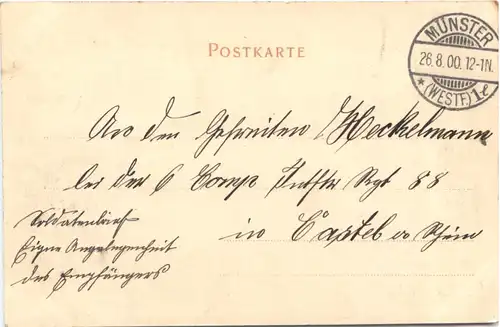 POSTKARTE
MÜNSTER
26.8.00.12-1N.
* (WESTF.) 1e
An den Gefreiten Heckelmann
bei der 6 Comp Inftr Rgt 88
in Castel a Rhein
Soldatenbrief
Eigne Angelegenheit
des Empfängers